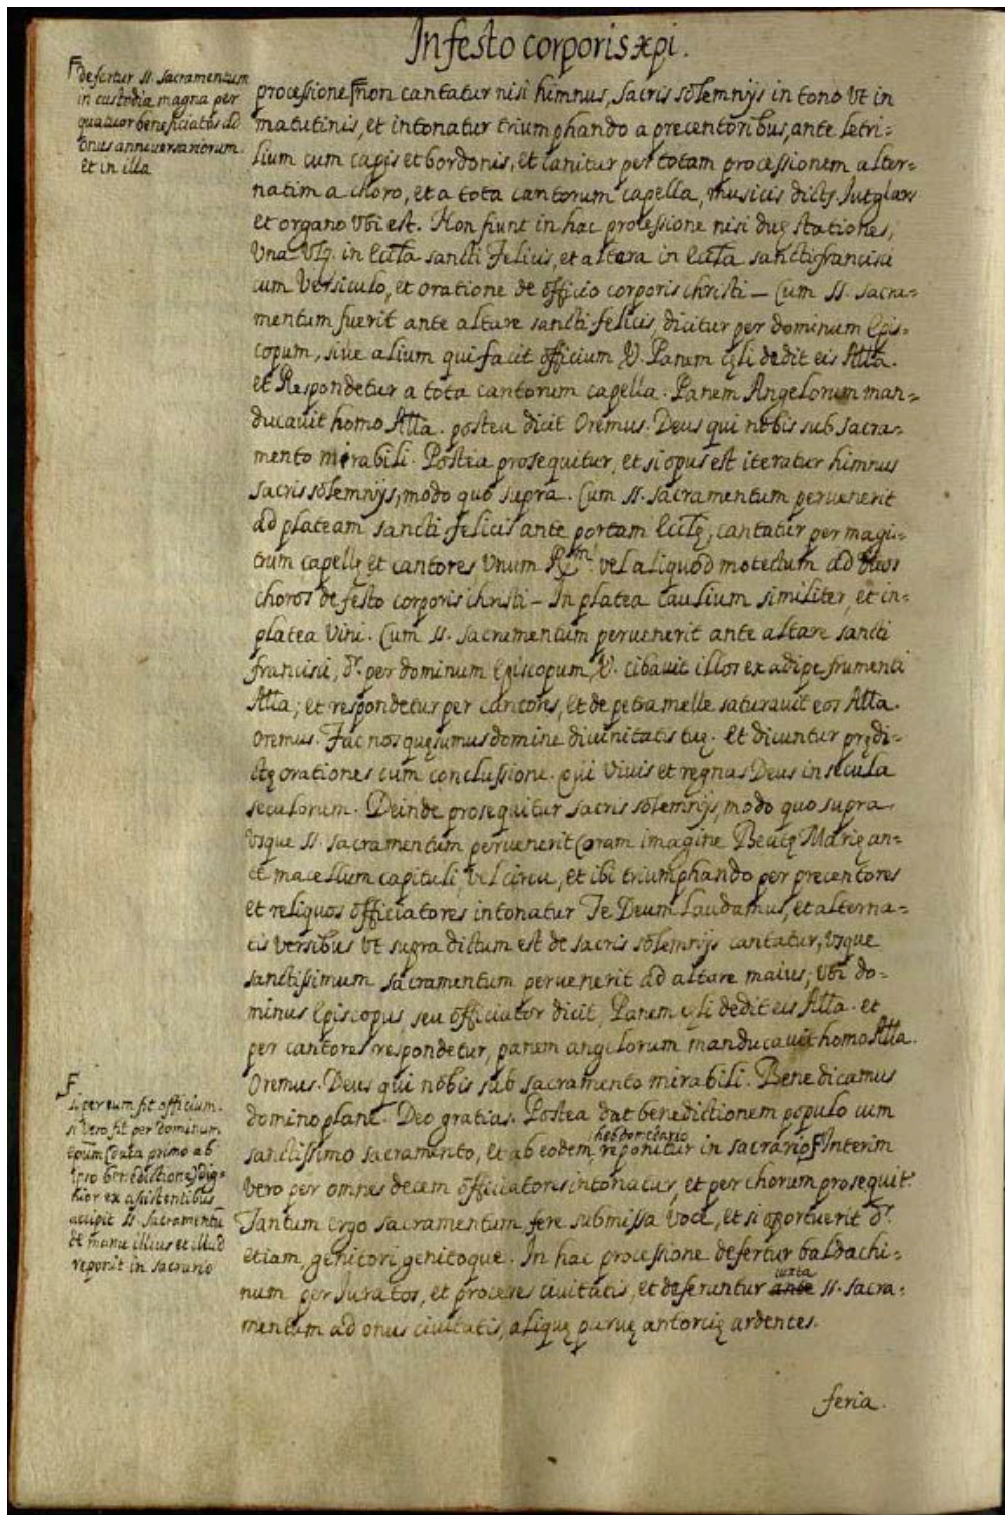 In festo corporis xpi.
defertur SS. sacramentum
in custodia magna per
quatuor beneficiatos ad
onus anniversariorum.
et in illa
processione non cantatur nisi himnus, sacris solemnijs in tono Vt in
matutinis, et intonatur triumphando a precentoribus, ante letri=
lium cum capis et bordonis, et canitur per totam processionem alter=
natim a choro, et a tota cantorum capella, musicis dictis Jutglars
et organo Vbi est. Non fiunt in hac processione nisi duę stationes,
Vna Vzq. in Eccl̃a sancti Felicis, et altera in Eccl̃a sancti francisci
cum Versiculo, et oratione de officio corporis christi – Cum SS. sacra=
mentum fuerit ante altare sancti felicis, dicitur per dominum Epis=
copum, sive alium qui facit officium V. Panem cęli dedit eis Alla.
et Respondetur a tota cantorum capella. Panem Angelorum man=
ducavit homo Alla. postea dicit Oremus. Deus qui nobis sub sacra=
mento mirabili. Postea prosequitur, et si opus est iteratur himnus
sacris solemnijs, modo quo supra. Cum SS. sacramentum pervenerit
ad plateam sancti felicis ante portam Eccl̃ę, cantatur per magis=
trum capellę et cantores Vnum Rm. vel aliquod motectum ad duos
choros de festo corporis christi – In platea caulium similiter, et in=
platea Vini. Cum SS. sacramentum pervenerit ante altare sancti
francisci, dr. per dominum Episcopum, V. cibavit illos ex adipe frumenti
Alla; et respondetur per cantores, et de petra melle saturavit eos Alla.
Oremus. Fac nos quęsumus domine divinitatis tuę. et dicuntur prędi=
ctę orationes cum conclussione. qui Vivis et regnas Deus in secula
seculorum. Deinde prosequitur sacris solemnijs, modo quo supra.
Vsque SS. sacramentum pervenerit Coram imagine Beatę Marię an=
te macellum capituli, vel circu, et ibi triumphando per precentores
et reliquos officiatores intonatur Te Deum Laudamus, et alterna=
tis versibus Vt supra dictum est de sacris solemnijs cantatur, Vsque
sanctissimum sacramentum pervenerit ad altare maius; Vbi do=
minus Episcopus, seu officiator dicit, Panem cęli dedit eis Alla. et
per cantores respondetur, panem angelorum manducavit homo Alla.
Oremus. Deus qui nobis sub sacramento mirabili. Benedicamus
domino planè. Deo gratias. Postea dat benedictionem populo cum
sanctissimo sacramento, et ab eodem, hebdomedario reponitur in sacrario Interim
si per eum fit officium.
si vero fit per dominum
epũm (data primo ab
ipso benedictione) dig=
nior ex assistentibus
accipit SS. sacramentũ
de manu illius et illud
reponit in sacrario
Vero per omnes decem officiatores intonatur, et per chorum prosequit.
Tantum ergo sacramentum fere submissa voce, et si oportuerit dr.
etiam, genitori genitoque. In hac processione defertur baldachi=
num per Juratos, et proceres civitatis, et deferuntur ante iuxta SS. sacra=
mentum ad onus civitatis, aliquę parvę antorcię ardentes.
feria.